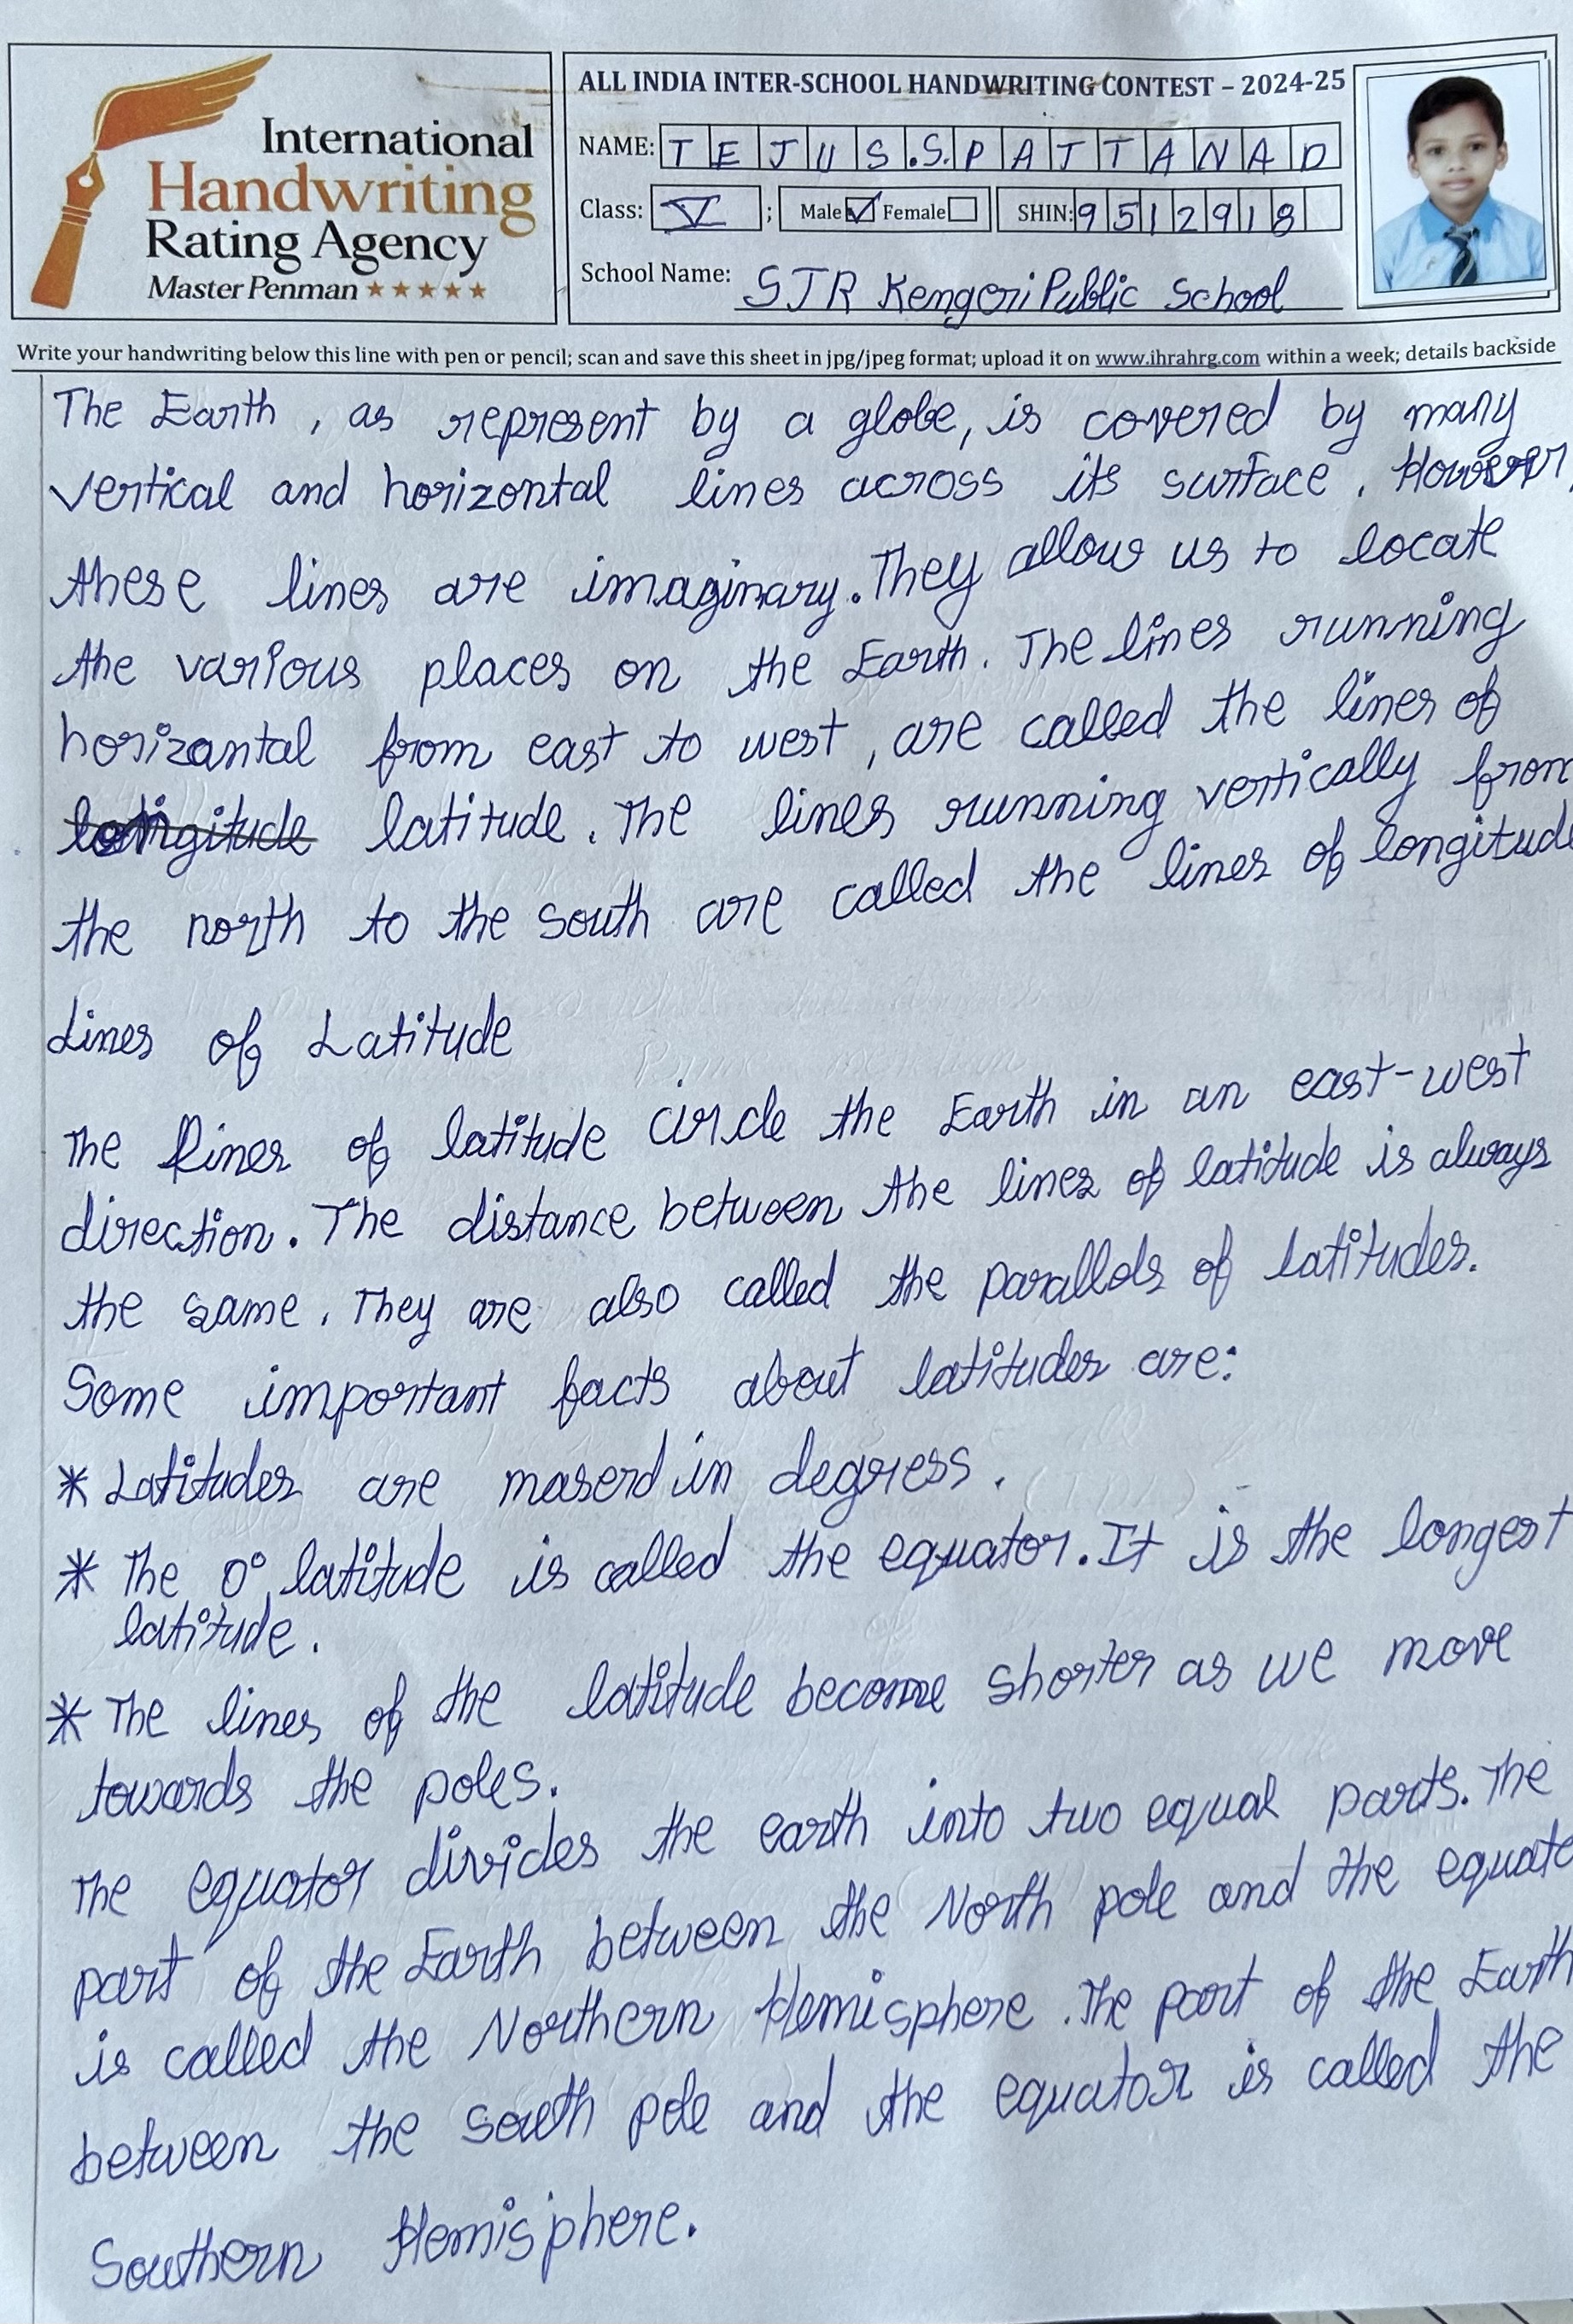 International
Handwriting
Rating Agency
Master Penman ★★★★★
ALL INDIA INTER-SCHOOL HANDWRITING CONTEST – 2024-25
NAME: TEJUS.S.PATTANAD
Class: V ; Male ☑ Female ☐ SHIN: 9512918
School Name: SJR Kengeri Public School
Write your handwriting below this line with pen or pencil; scan and save this sheet in jpg/jpeg format; upload it on www.ihrahrg.com within a week; details backside
The Earth, as represent by a globe, is covered by many
vertical and horizontal lines across its surface. However,
these lines are imaginary. They allow us to locate
the various places on the Earth. The lines running
horizantal from east to west, are called the lines of
latitude. The lines running vertically from
the north to the south are called the lines of longitude
Lines of Latitude
The lines of latitude circle the Earth in an east-west
direction. The distance between the lines of latitude is always
the same. They are also called the parallols of latitudes.
Some important facts about latitudes are:
* Latitudes are maserd in degress.
* The 0° latitude is called the equator. It is the longest
latitude.
* The lines of the latitude become shorter as we move
towards the poles.
The equator divides the earth into two equal parts. The
part of the Earth between the North pole and the equato
is called the Northern Hemisphere. The part of the Earth
between the south pole and the equator is called the
Southern Hemisphere.